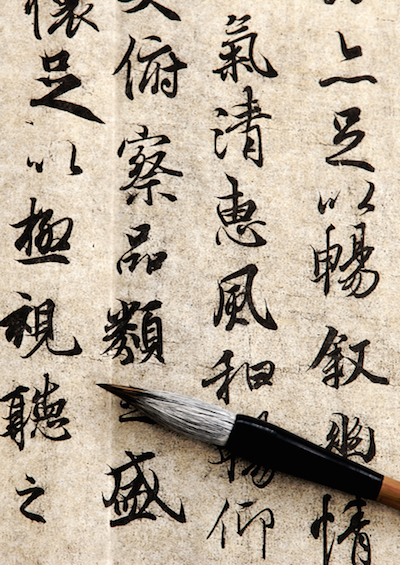 亦足以暢叙幽情
氣清惠風和暢仰
俯察品類之盛
懷足以極視聽之